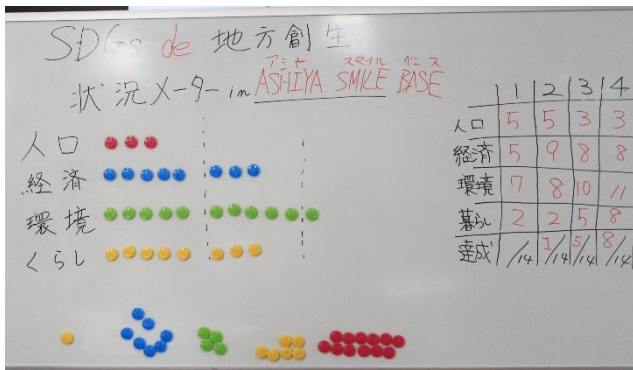 SDGs de 地方創生
状況メーター in ASHIYA SMILE BASE
アシヤ スマイル ベース
人口
経済
環境
くらし
1 2 3 4
人口 5 5 3 3
経済 5 9 8 8
環境 7 8 10 11
暮らし 2 2 5 8
達成 /14 1/14 5/14 8/14